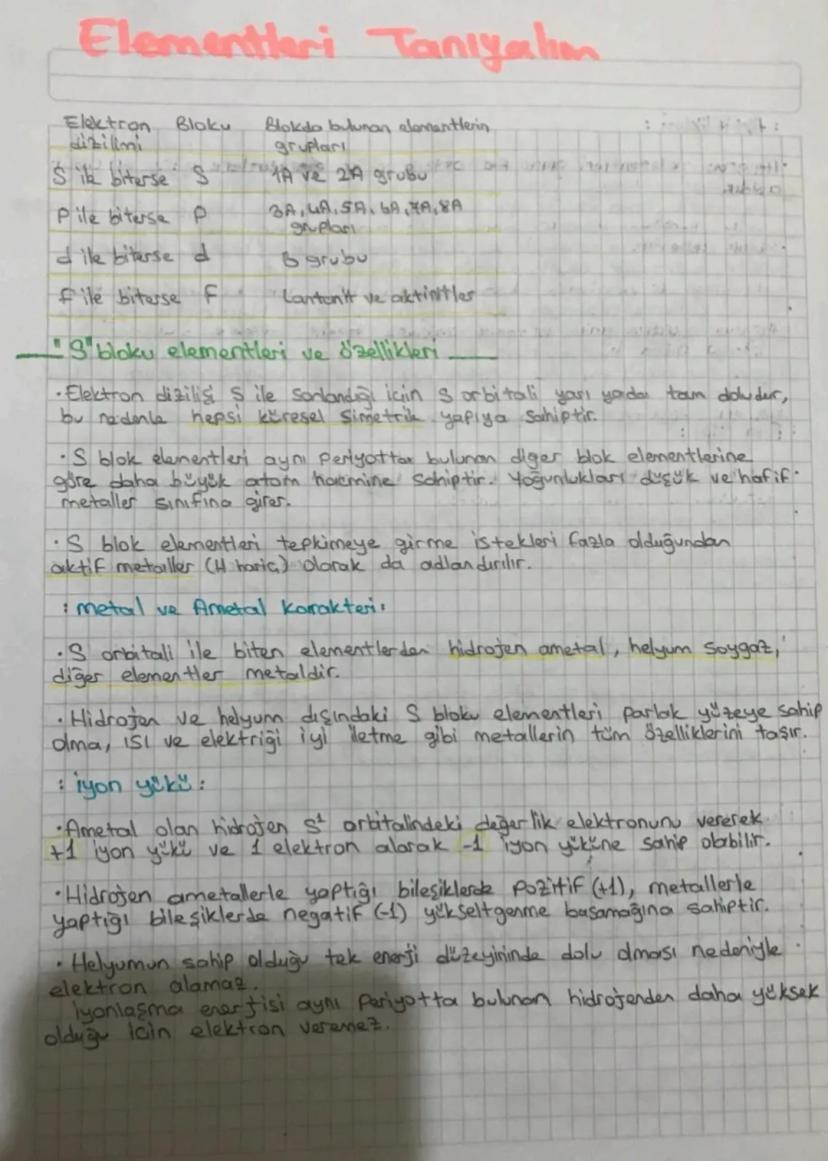 Elementleri Tanıyalım
Elektron Bloku Blokda bulunan elementlerin
dizilimi grupları
S ile biterse S 1A ve 2A grubu
P ile biterse P 3A, 4A, 5A, 6A, 7A, 8A
grupları
d ile biterse d B grubu
f ile biterse F Lantanit ve aktinitler
"S" bloku elementleri ve özellikleri
• Elektron dizilişi S ile sonlandığı için S orbitali yarı yada tam doludur,
bu nedenle hepsi küresel simetrik yapıya sahiptir.
• S blok elementleri aynı periyotta bulunan diğer blok elementlerine
göre daha büyük atom hacmine sahiptir. Yoğunlukları düşük ve hafif
metaller sınıfına girer.
• S blok elementleri tepkimeye girme istekleri fazla olduğundan
aktif metaller (H hariç) olarak da adlandırılır.
: metal ve Ametal Karakteri:
• S orbitali ile biten elementlerden hidrojen ametal, helyum soygaz,
diğer elementler metaldir.
• Hidrojen ve helyum dışındaki S bloku elementleri parlak yüzeye sahip
olma, ısı ve elektriği iyi iletme gibi metallerin tüm özelliklerini taşır.
: iyon yükü:
• Ametal olan hidrojen S¹ orbitalindeki değerlik elektronunu vererek
+1 iyon yükü ve 1 elektron alarak -1 iyon yüküne sahip olabilir.
• Hidrojen ametallerle yaptığı bileşiklerde pozitif (+1), metallerle
yaptığı bileşiklerde negatif (-1) yükseltgenme basamağına sahiptir.
• Helyumun sahip olduğu tek enerji düzeyininde dolu olması nedeniyle
elektron alamaz.
İyonlaşma enerjisi aynı periyotta bulunan hidrojenden daha yüksek
olduğu için elektron veremez.